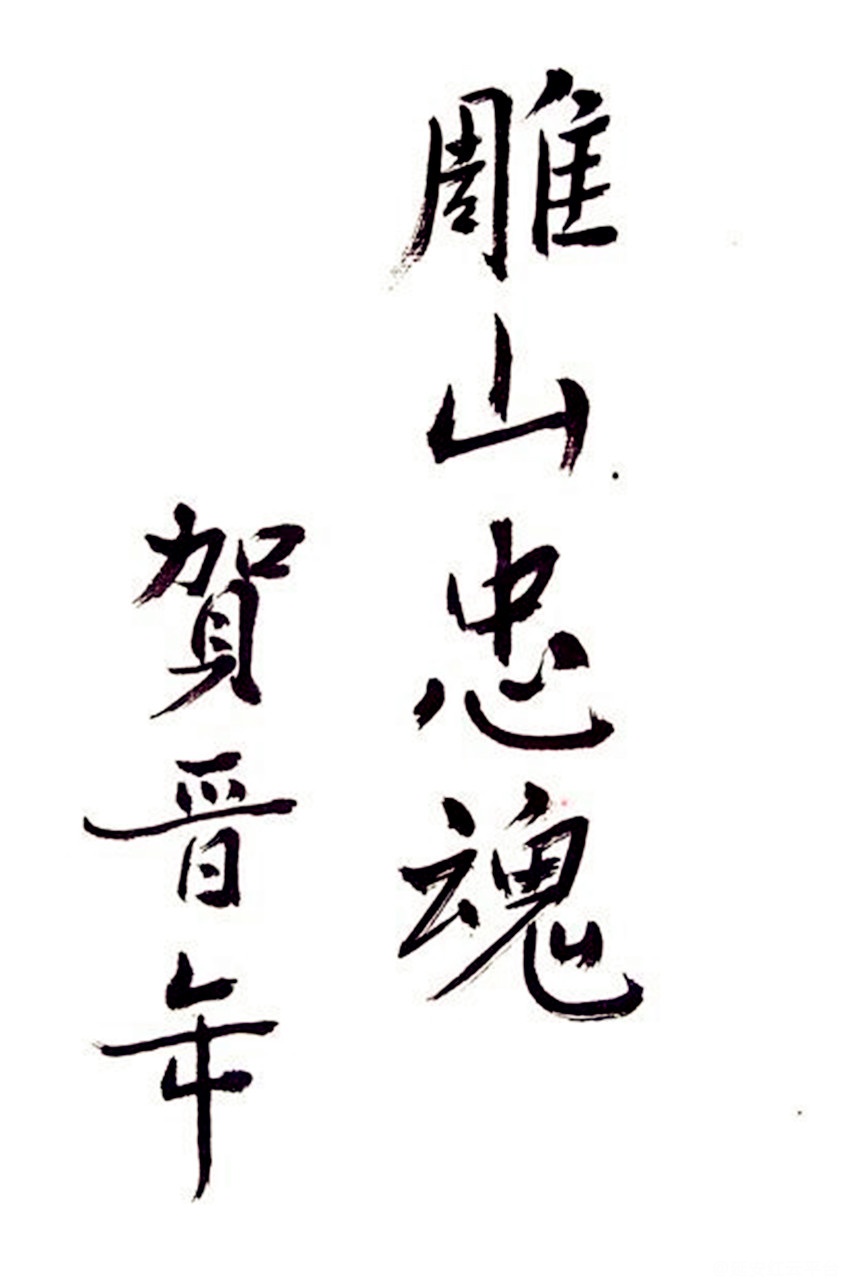 雕山忠魂
賀晋年